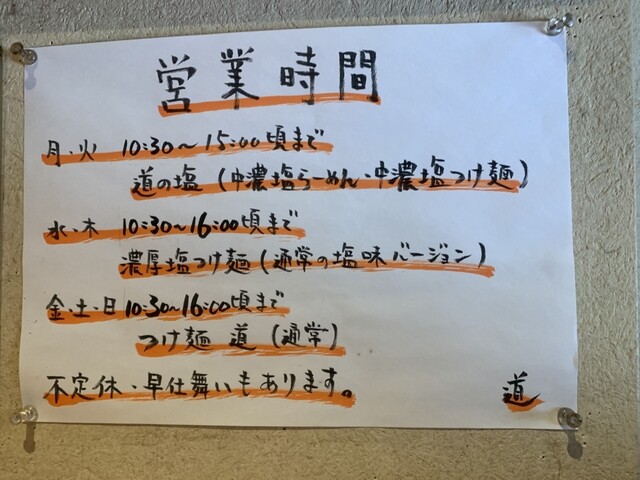 営業時間
月・火 10:30〜15:00頃まで
道の塩 (中濃塩らーめん・中濃塩つけ麺)
水・木 10:30〜16:00頃まで
濃厚塩つけ麺 (通常の塩味バージョン)
金・土・日 10:30〜16:00頃まで
つけ麺 道 (通常)
不定休・早仕舞いもあります。
道